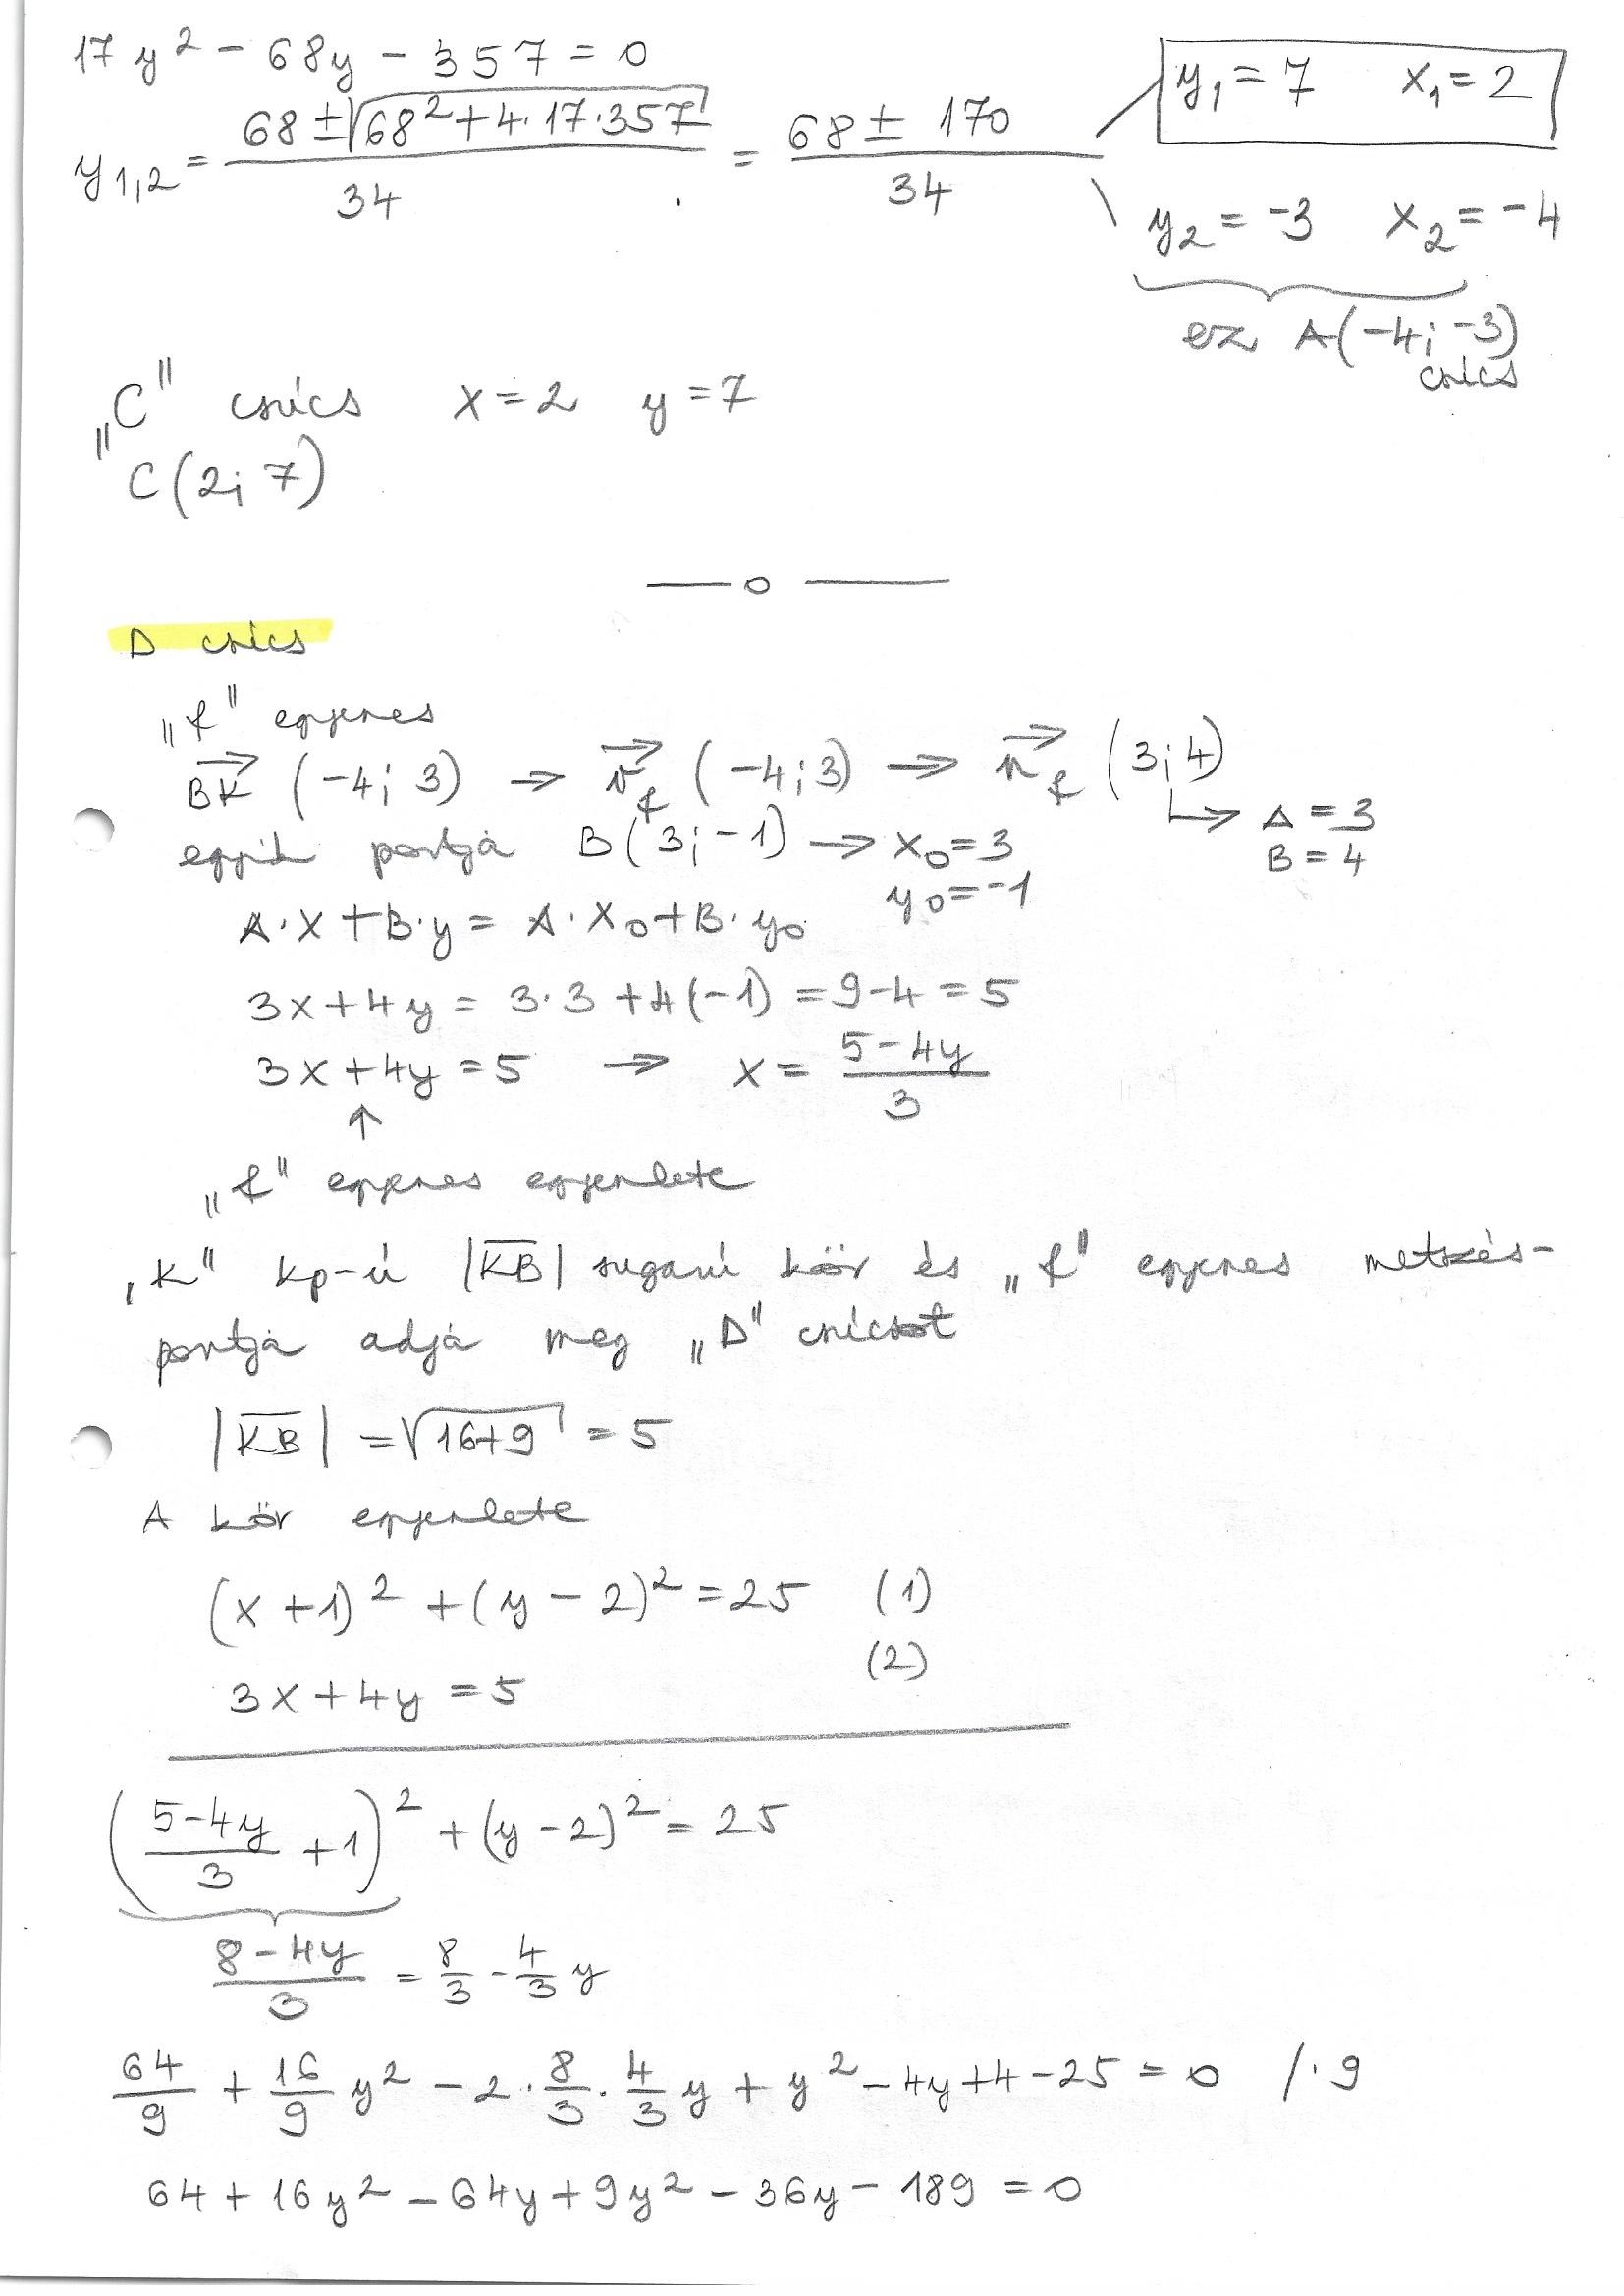 17y² - 68y - 357 = 0
y1,2 = (68 ± √(68² + 4·17·357)) / 34 = (68 ± 170) / 34
y₁ = 7 x₁ = 2
y₂ = -3 x₂ = -4
ez A(-4; -3)
csúcs
„C" csúcs x = 2 y = 7
C(2; 7)
— o —
D csúcs
„f" egyenes
BK→ (-4; 3) → v→f (-4; 3) → n→f (3; 4)
↳ A = 3
B = 4
egyik pontja B(3; -1) → x₀ = 3
y₀ = -1
A·x + B·y = A·x₀ + B·y₀
3x + 4y = 3·3 + 4(-1) = 9 - 4 = 5
3x + 4y = 5 → x = (5 - 4y) / 3
↑
„f" egyenes egyenlete
„K" kp-ú |KB| sugarú kör és „f" egyenes metszés-
pontja adja meg „D" csúcsot
|KB| = √(16+9) = 5
A kör egyenlete
(x + 1)² + (y - 2)² = 25 (1)
3x + 4y = 5 (2)
((5 - 4y)/3 + 1)² + (y - 2)² = 25
(8 - 4y)/3 = 8/3 - 4/3 y
64/9 + 16/9 y² - 2 · 8/3 · 4/3 y + y² - 4y + 4 - 25 = 0 /·9
64 + 16y² - 64y + 9y² - 36y - 189 = 0